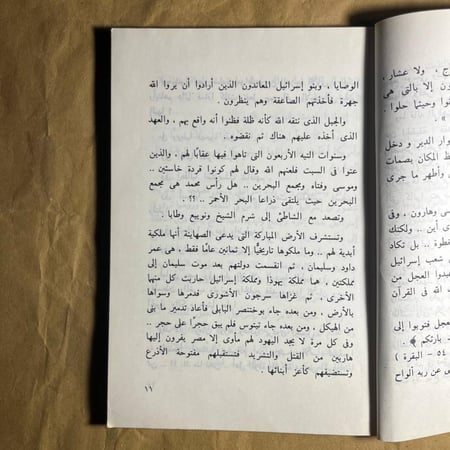 الوصايا ، وبنو إسرائيل المعاندون الذين أرادوا أن يروا الله
جهرة فأخذتهم الصاعقة وهم ينظرون .
والجبل الذى نتقه الله كأنه ظلة فظنوا أنه واقع بهم ، والعهد
الذى أخذه عليهم هناك ثم نقضوه ..
وسنوات التيه الأربعون التى تاهوا فيها عقابًا لهم ، والذين
عتوا فى السبت فلعنهم الله وقال لهم كونوا قردة خاسئين ..
وموسى وفتاه ومجمع البحرين .. هل رأس محمد هى مجمع
البحرين حيث يلتقى ذراعا البحر الأحمر .. ؟؟ .
وتصعد مع الشاطئ إلى شرم الشيخ ونويبع وطابا .
وتستشرف الأرض المباركة التى يدعى الصهاينة أنها ملكية
أبدية لهم .. وما ملكوها تاريخيًّا إلا ثمانين عامًا فقط ، هى عمر
داود وسليمان ، ثم انقسمت دولتهم بعد موت سليمان إلى
مملكتين ، هما مملكة يهوذا ومملكة إسرائيل حاربت كل منهما
الأخرى ، ثم غزاها سرجون الآشورى فدمرها وسواها
بالأرض ، ومن بعده جاء بوختنصر البابلى فأعاد تدمير ما بنى
من الهيكل ، ومن بعده جاء تيتوس فلم يبق حجرًا على حجر ..
وفى كل مرة لا يجد اليهود لهم مأوى إلا مصر يفرون إليها
هاربين من القتل والتشريد فتستقبلهم مفتوحة الأذرع
وتستضيفهم كأعز أبنائها .
١١
، ولا عشار ،
إلا بالتى هى
وحينها حلوا .
الدير و دخل
المكان بصمات
وأظهر ما جرى
وهارون ، وفى
أين .. ولكنك
.. بل تكاد
شعب إسرائيل
العجل من
الله فى القرآن
العجل فتوبوا إلى
بارئكم ﴾ .
٥٤ – البقرة )
عن ربه ألواح